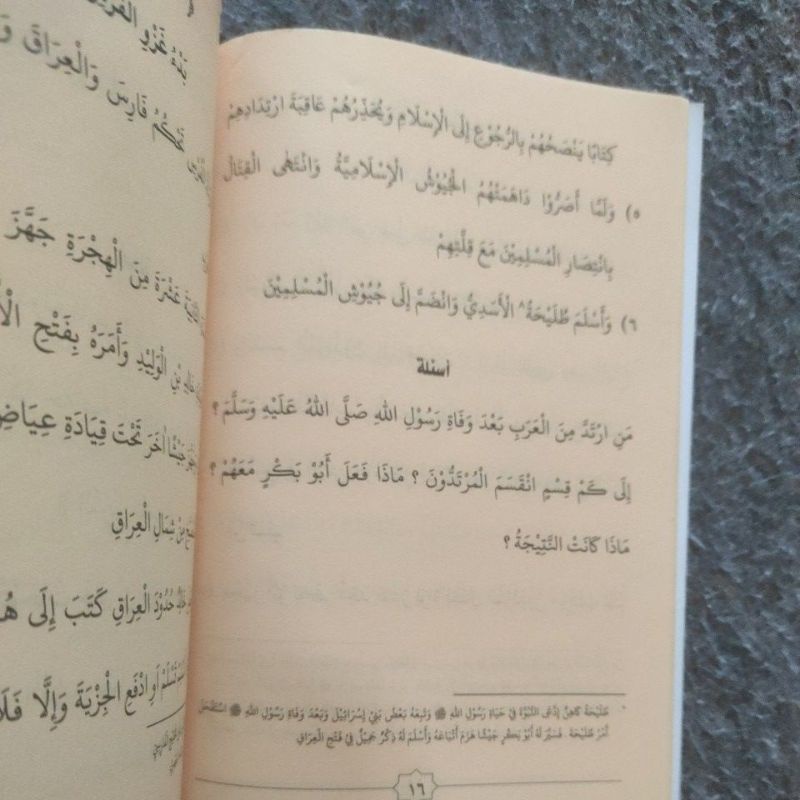 كِتَابًا يَنْصَحُهُمْ بِالرُّجُوْعِ إِلَى الْإِسْلَامِ وَيُحَذِّرُهُمْ عَاقِبَةَ ارْتِدَادِهِمْ
٥) وَلَمَّا أَصَرُّوْا دَاهَمَتْهُمُ الْجُيُوْشُ الْإِسْلَامِيَّةُ وَانْتَهَى الْقِتَالُ
بِانْتِصَارِ الْمُسْلِمِيْنَ مَعَ قِلَّتِهِمْ
٦) وَأَسْلَمَ طُلَيْحَةُ ٨ الْأَسَدِيُّ وَانْضَمَّ إِلَى جُيُوْشِ الْمُسْلِمِيْنَ
اسئلة
مَنِ ارْتَدَّ مِنَ الْعَرَبِ بَعْدَ وَفَاةِ رَسُوْلِ اللهِ صَلَّى اللهُ عَلَيْهِ وَسَلَّمَ ؟
إِلَى كَمْ قِسْمٍ انْقَسَمَ الْمُرْتَدُّوْنَ ؟ مَاذَا فَعَلَ أَبُوْ بَكْرٍ مَعَهُمْ ؟
مَاذَا كَانَتْ النَّتِيْجَةُ ؟
طُلَيْحَةُ كَاهِنٌ اِدَّعَى النُّبُوَّةَ فِي حَيَاةِ رَسُوْلِ اللهِ ﷺ وَتَبِعَهُ بَعْضُ بَنِيْ اِسْرَائِيْلَ وَبَعْدَ وَفَاةِ رَسُوْلِ اللهِ ﷺ اسْتَفْحَلَ
أَمْرُ طُلَيْحَةَ. فَسَيَّرَ لَهُ أَبُوْ بَكْرٍ جَيْشًا هَزَمَ أَتْبَاعَهُ وَأَسْلَمَ لَهُ ذِكْرٌ جَمِيْلٌ فِيْ فَتْحِ الْعِرَاقِ
١٦
بَدْءُ غَزْوِ
تَحْكُمُ فَارِسَ وَالْعِرَاقَ
عَشْرَةَ مِنَ الْهِجْرَةِ جَهَّزَ
بْنِ الْوَلِيْدِ وَأَمَرَهُ بِفَتْحِ
جَيْشًا آخَرَ تَحْتَ قِيَادَةِ عِيَاضِ
مِنْ شِمَالِ الْعِرَاقِ
حُدُوْدَ الْعِرَاقِ كَتَبَ إِلَى
أَوِ ادْفَعِ الْجِزْيَةَ وَإِلَّا